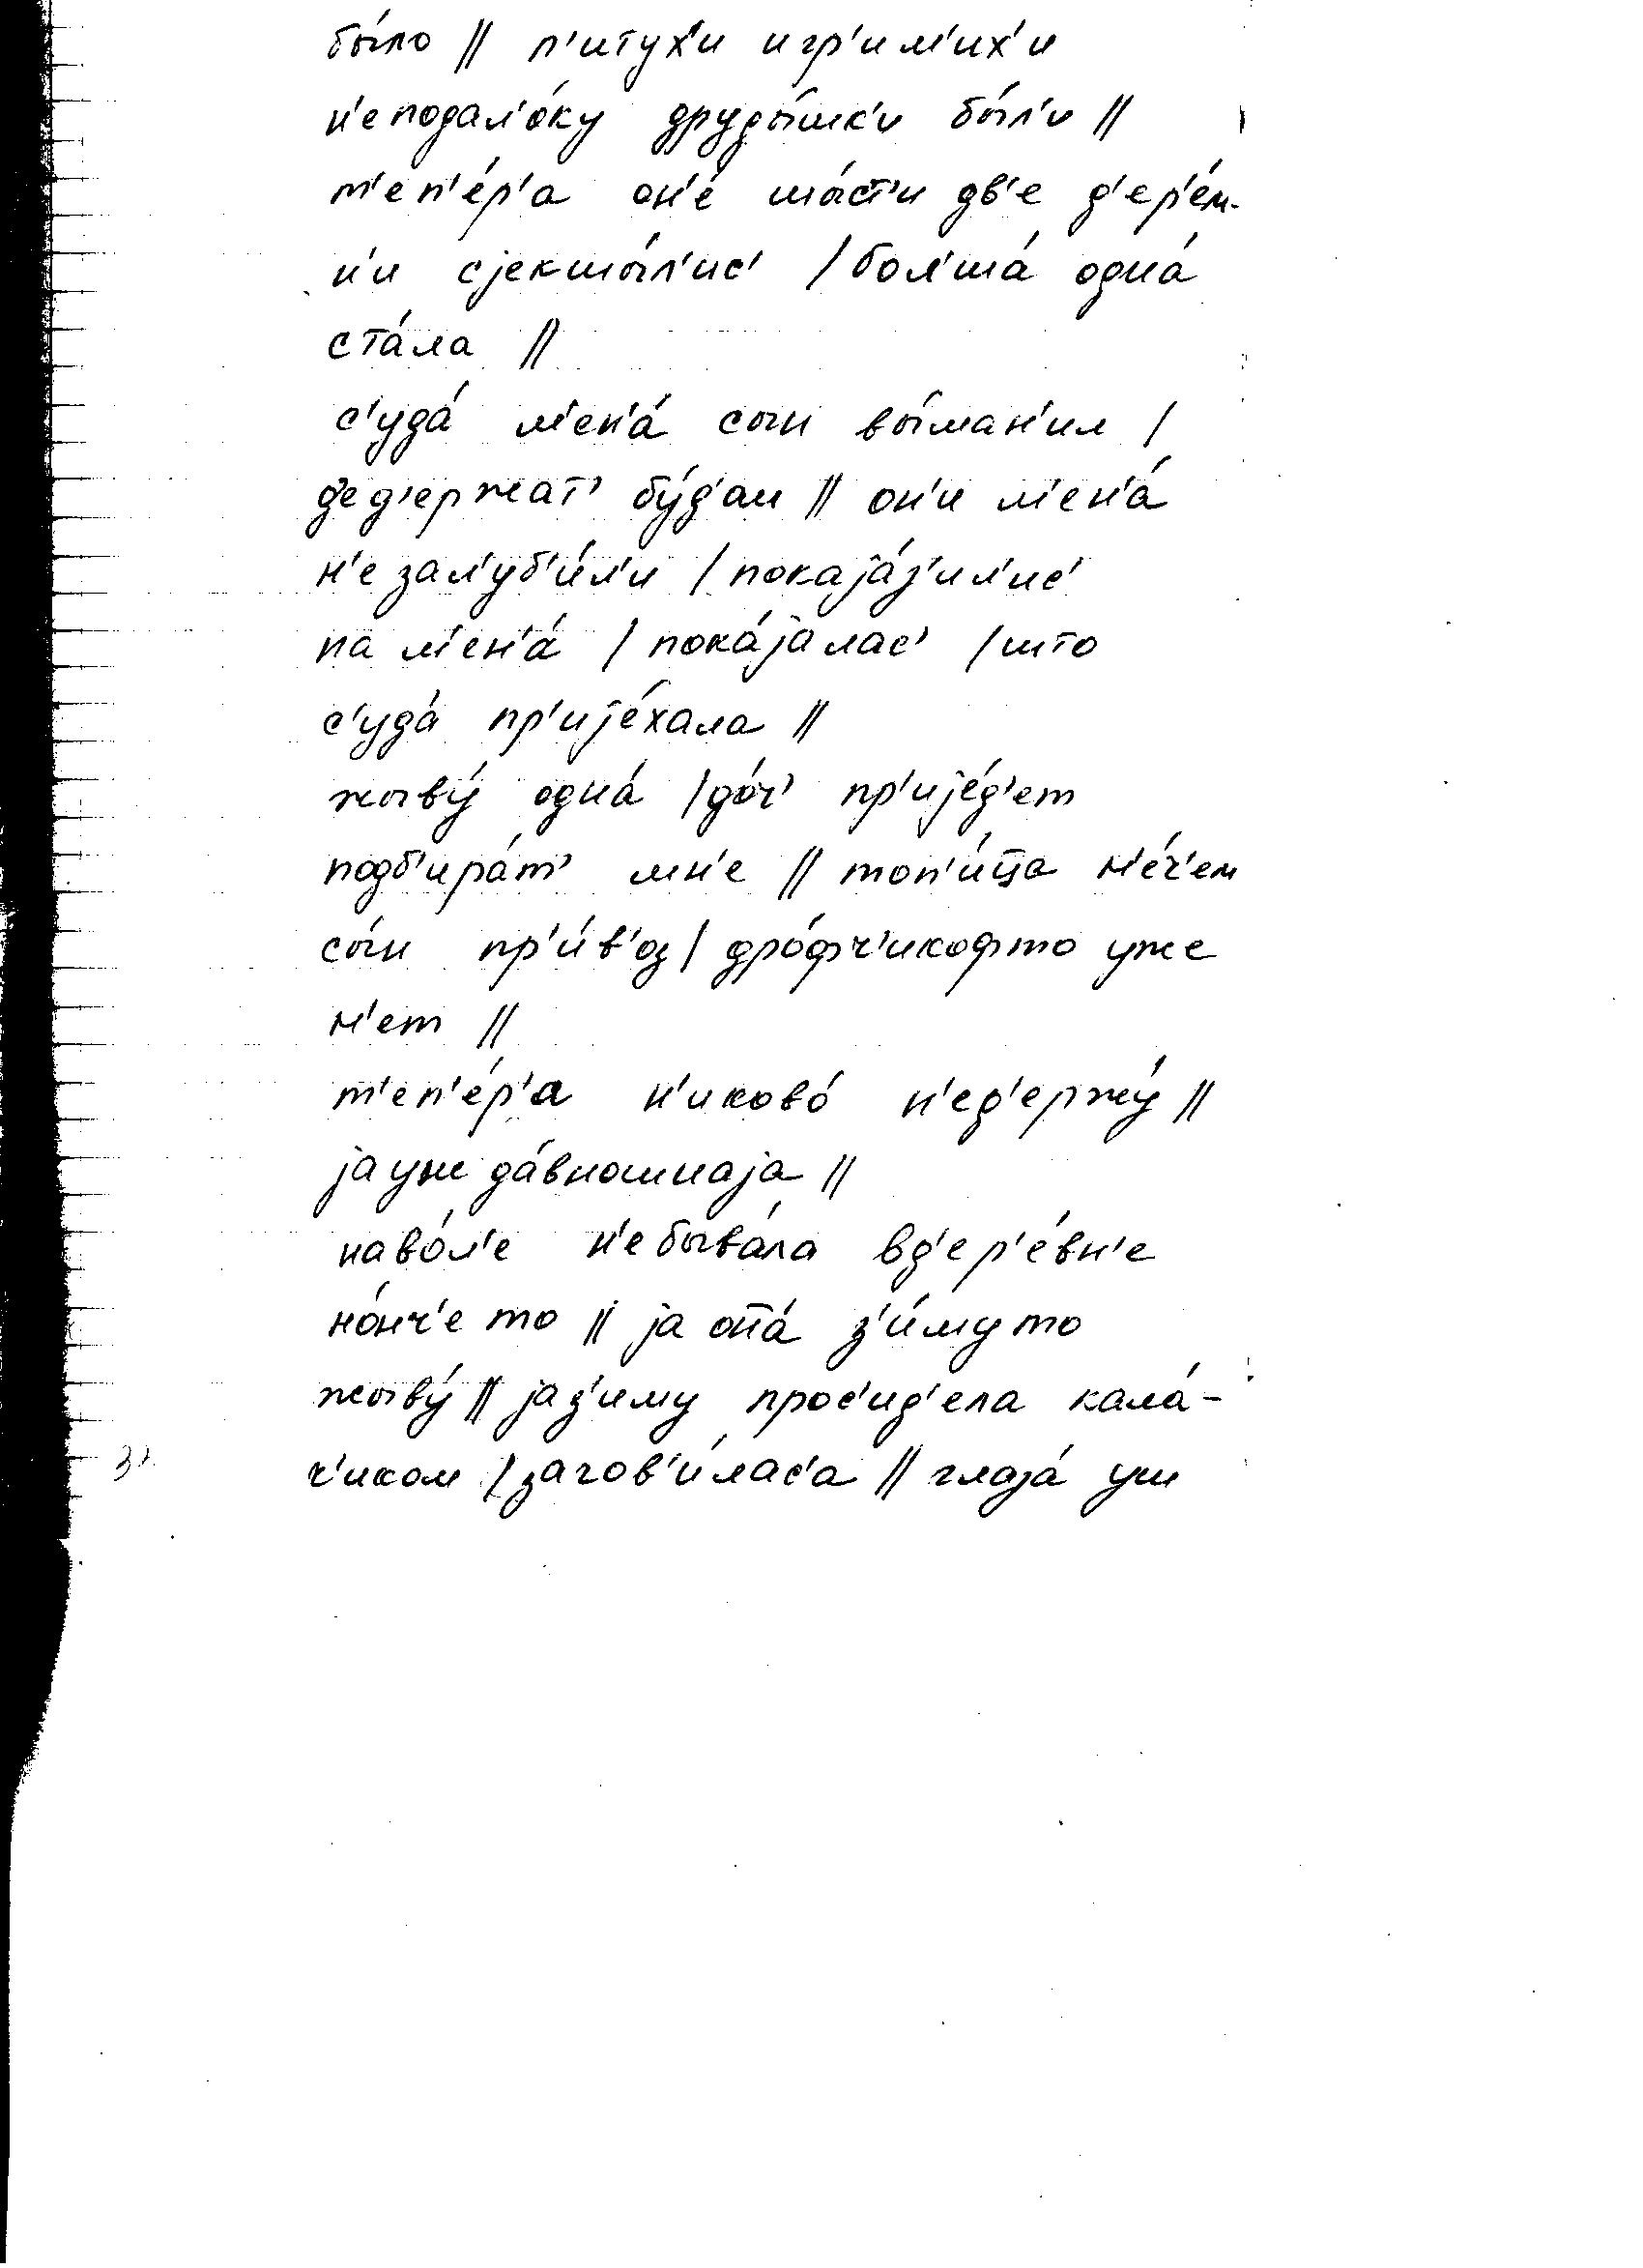 бы́ло || п'итух'и и гр'им'их'и
н'еподал'о́ку друды́шк'и бы́л'и ||
т'еп'е́р'а он'е́ шы́ст'и дв'е д'ер'е́м-
н'и сjекшы́л'ис' / бол'ша́ одна́
ста́ла ||
с'уда́ м'ен'а́ сын вы́ман'ил /
д'ед'ержат' бу́д'ам || он'и м'ен'а́
н'е зал'уб'и́л'и / покаjа́з'ил'ис'
на м'ен'а́ / пока́jалас' / што
с'уда́ пр'иjе́хала ||
жыву́ одна́ / до́ч' пр'иjе́д'ет
подб'ира́т' мн'е || топ'и́ц̄а н'е́ч'ем
сы́н пр'и́в'оз / дро́фч'икофто уже
н'ет ||
т'еп'е́р'а н'иково́ н'ед'ержу́ ||
jауж да́вношнаjа ||
наво́л'е н'ебыва́ла вд'ер'е́вн'е
но́нч'е то || jа она́ з'и́муто
жыву́ || jаз'иму прос'ид'ела кала́-
ч'иком / заговʼи́лас'а || глаjа́ уш